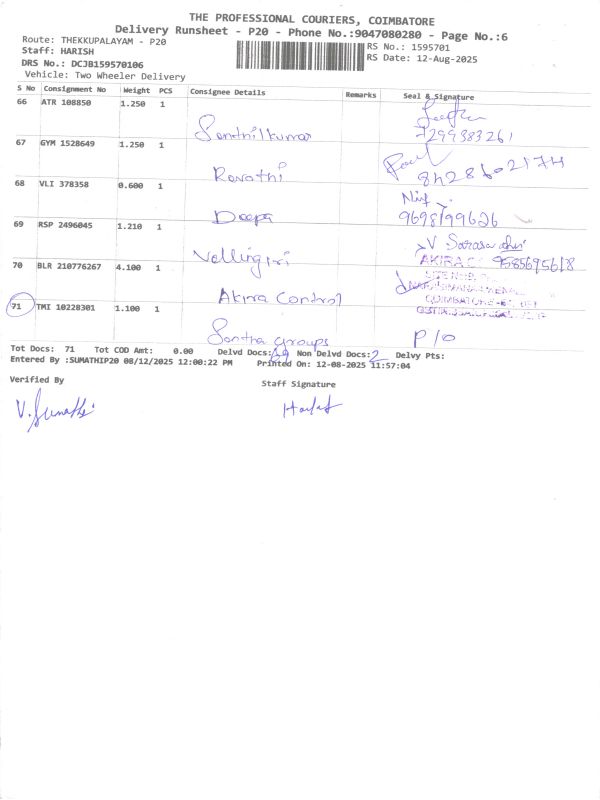 THE PROFESSIONAL COURIERS, COIMBATORE
Delivery Runsheet - P20 - Phone No.:9047080280 - Page No.:6
Route: THEKKUPALAYAM - P20
Staff: HARISH
DRS No.: DCJB159570106
Vehicle: Two Wheeler Delivery
RS No.: 1595701
RS Date: 12-Aug-2025
S No Consignment No Weight PCS Consignee Details Remarks Seal & Signature
66 ATR 108850 1.250 1
Senthilkumar 7299383261
67 GYM 1528649 1.250 1
Revathi 8428602174
68 VLI 378358 0.600 1
Deepa 9698199626
69 RSP 2496045 1.210 1
Vellingiri V Saraswathi 9585695618
70 BLR 210776267 4.100 1
Akira Control AKIRA
71 TMI 10228301 1.100 1
Santha groups P/O
Tot Docs: 71 Tot COD Amt: 0.00 Delvd Docs: 69 Non Delvd Docs: 2 Delvy Pts:
Entered By :SUMATHIP20 08/12/2025 12:00:22 PM Printed On: 12-08-2025 11:57:04
Verified By Staff Signature
V. Sumathi